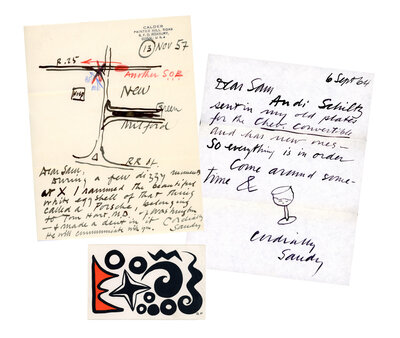 CALDER
PAINTER HILL ROAD
R.F.D. ROXBURY,
13 NOV 57
R.25
Another SOB
New
Green
Milford
Dear Sam,
During a few dizzy moments
at X I rammed the beautiful
white eggshell of that thing
called a Porsche, belonging
to Tom Hart, M.D.
& made a dent in it Cordially
He will communicate Sandy
6 Sept 64
Dear Sam,
Andi Schiltz
sent in my old plates
for the Chev. Convertible
and has new ones—
So everything is in order
Come around some-
time &
Cordially
Sandy